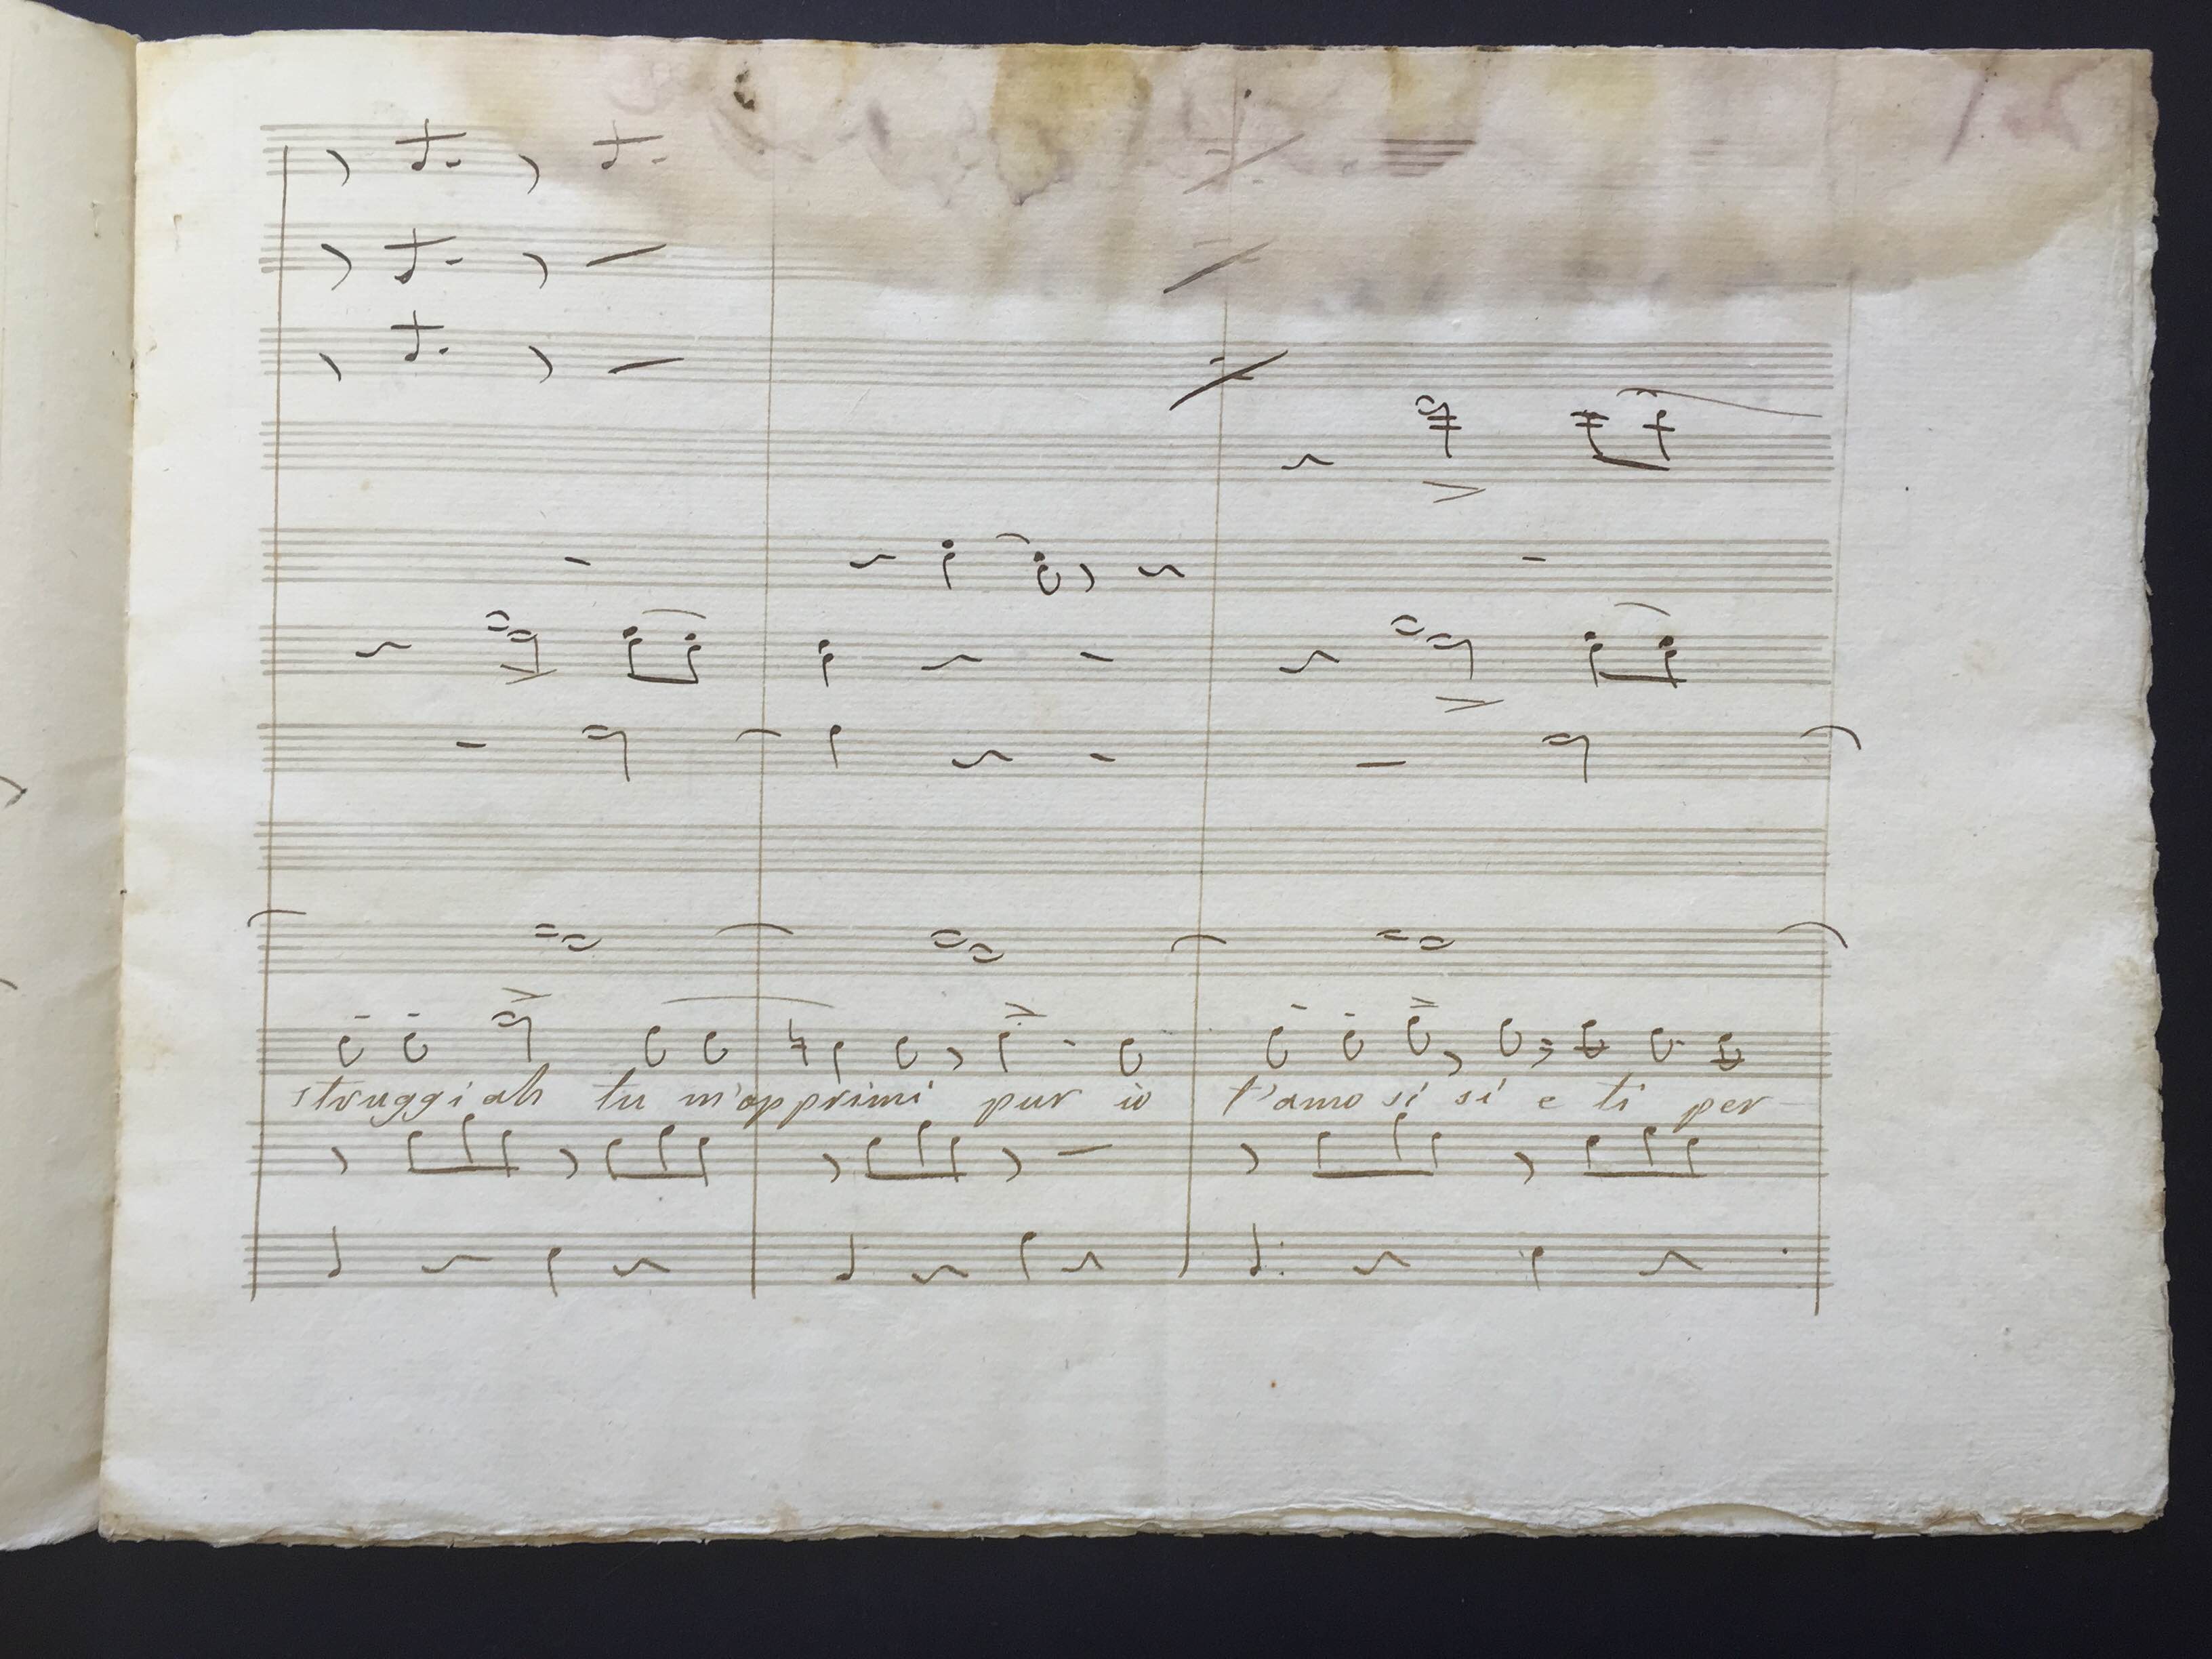 struggi ah tu m'opprimi pur io t'amo si si e ti per